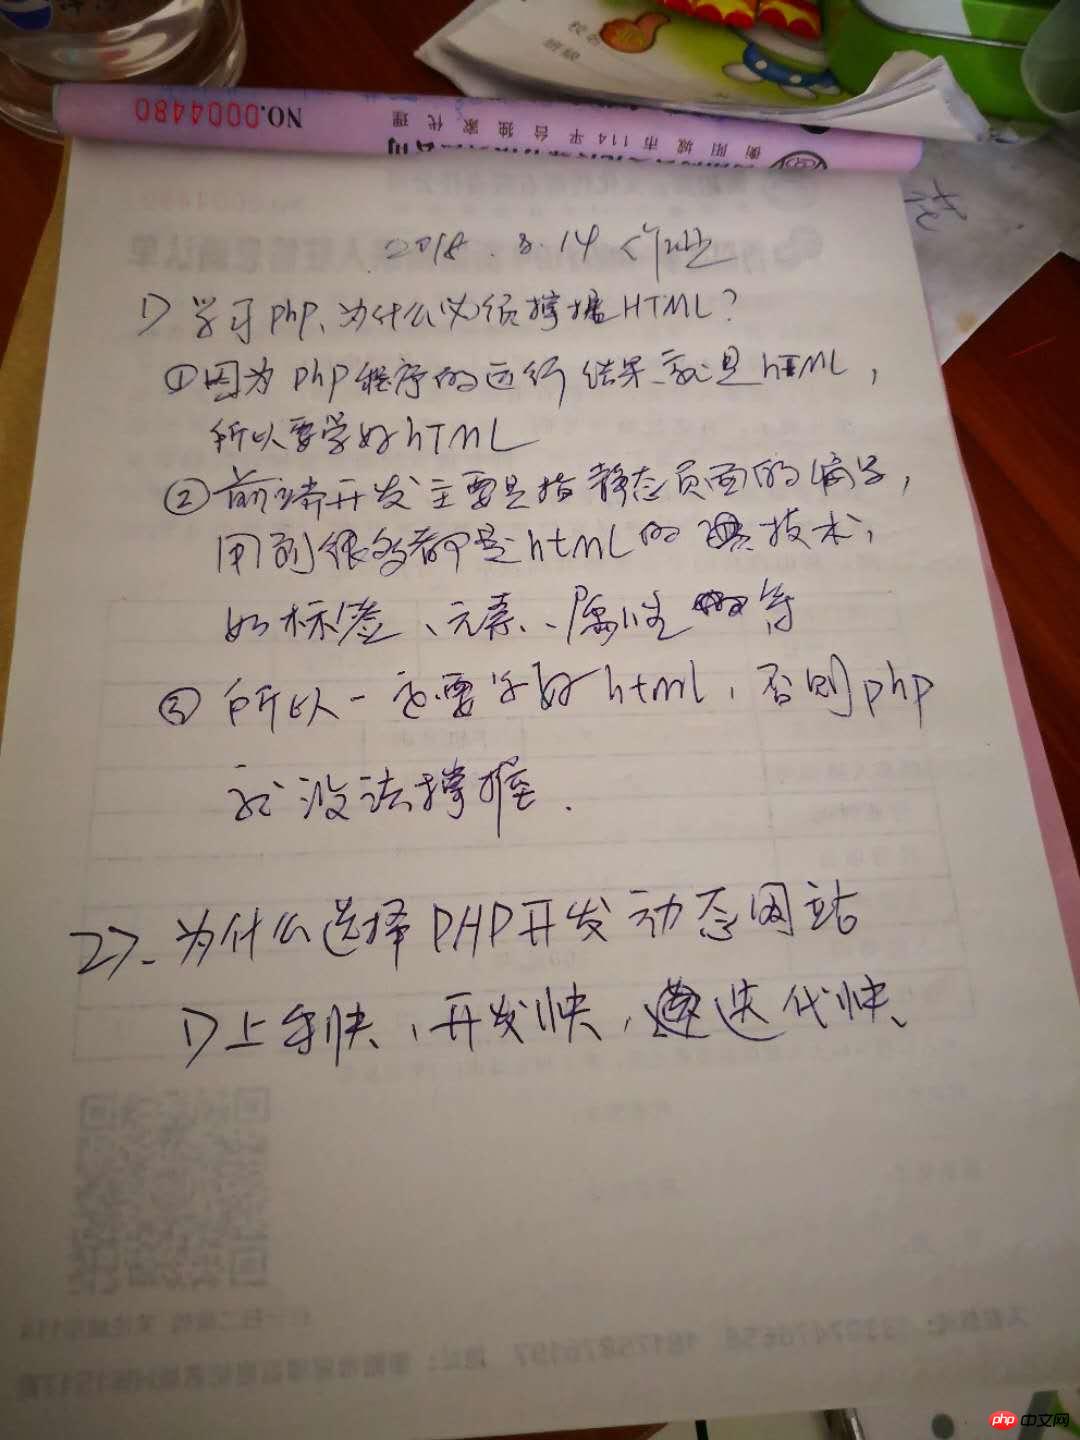 校名
班级
NO.0004480
衡阳城市114平台独家代理
2018.8.14 作业
1) 学习php、为什么必须撑握HTML?
①因为php程序的运行结果就是hTML,
所以要学好hTML
②前端开发主要是指静态页面的编写,
用到很多都是html的技术,
如标签、元素、属性等
③所以一定要学好html,否则php
就没法撑握.
2).为什么选择PHP开发动态网站
1)上手快,开发快,迭代快、
php 中文网